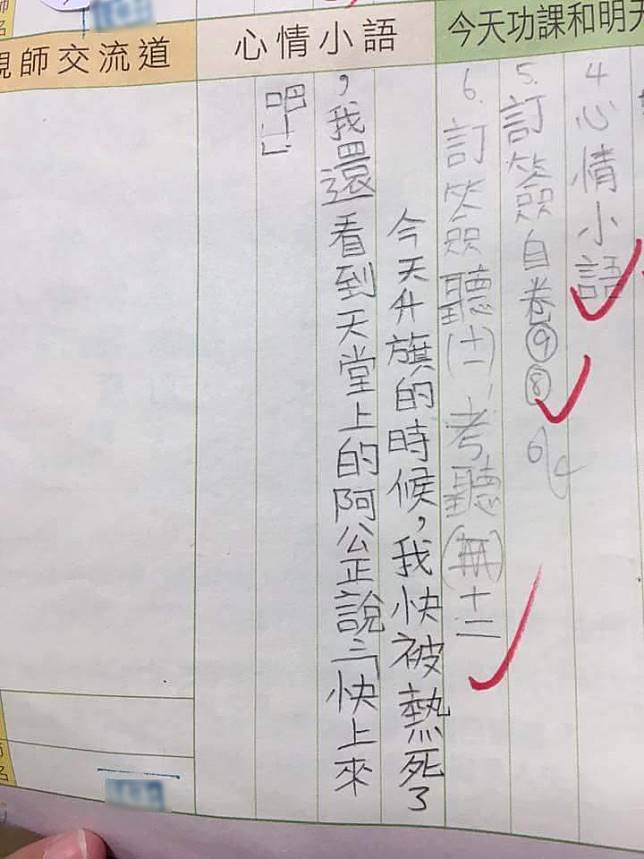 今天功課和明天
4 心情小語
5.訂簽自卷⑨⑧
6.訂簽聽(十一),考聽十二
心情小語
今天升旗的時候,我快被熱死了
,我還看到天堂上的阿公正說:「快上來
吧!」
親師交流道